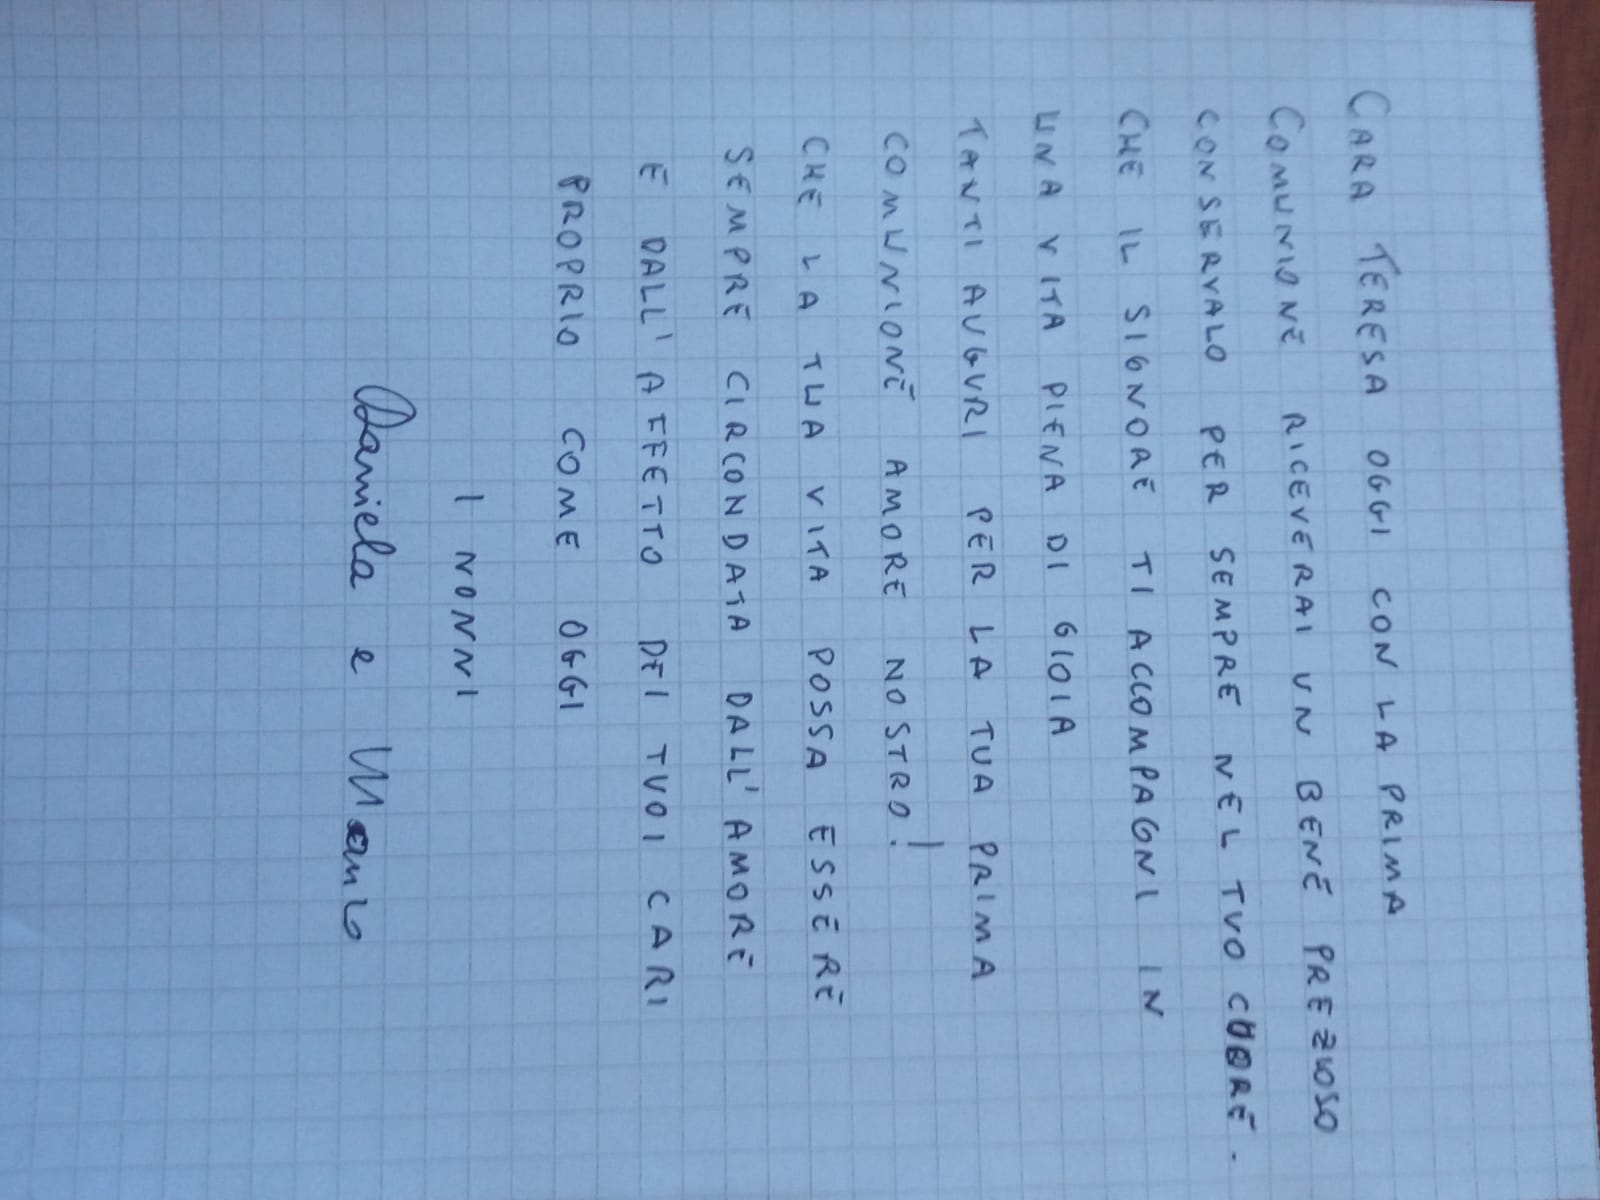 CARA TERESA OGGI CON LA PRIMA
COMUNIONE RICEVERAI UN BENE PREZIOSO
CONSERVALO PER SEMPRE NEL TUO CUORE.
CHE IL SIGNORE TI ACCOMPAGNI IN
UNA VITA PIENA DI GIOIA
TANTI AUGURI PER LA TUA PRIMA
COMUNIONE AMORE NOSTRO!
CHE LA TUA VITA POSSA ESSERE
SEMPRE CIRCONDATA DALL'AMORE
E DALL'AFFETTO DEI TUOI CARI
PROPRIO COME OGGI
I NONNI
Daniela e